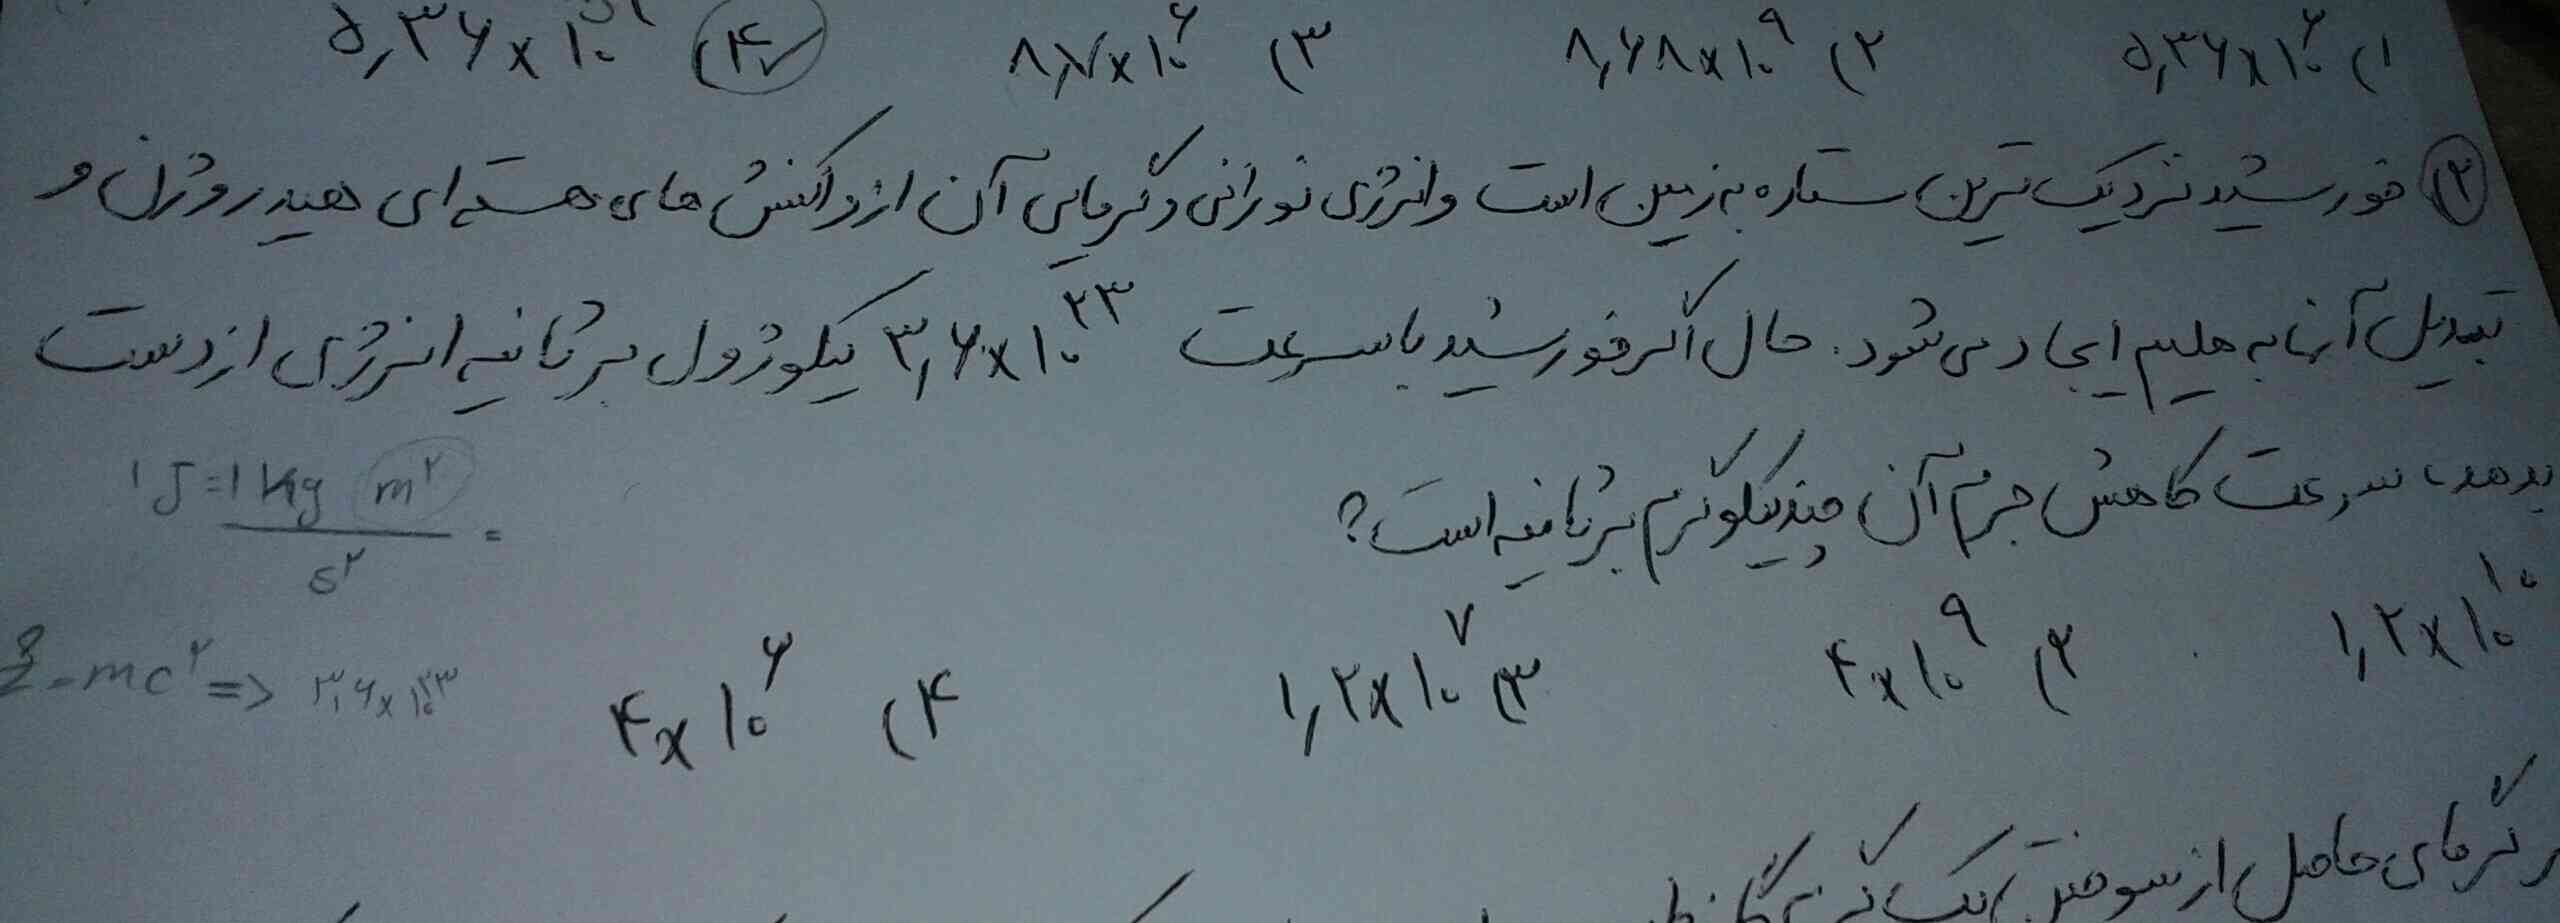 ۱) ۵٫۳۶×۱۰^۶ ۲) ۸٫۶۸×۱۰^۹ ۳) ۸٫۷×۱۰^۶ ۴) ۵٫۳۶×۱۰
۲) خورشید نزدیک ترین ستاره به زمین است و انرژی نورانی و گرمایی آن از واکنش های هسته ای هیدروژن و
تبدیل آنها به هلیم ایجاد می شود. حال اگر خورشید با سرعت ۳٫۶×۱۰^۲۳ کیلوژول بر ثانیه انرژی از دست
بدهد، سرعت کاهش جرم آن چند کیلوگرم بر ثانیه است؟
1J = 1 kg m^۲ / s^۲ =
۱٫۲×۱۰^۱۰ ۲) ۴×۱۰^۹ ۳) ۱٫۲×۱۰^۷ ۴) ۴×۱۰^۶
= mc^۲ => ۳٫۶×۱۰^۲۳
گرمای حاصل از سوختن یک گرم